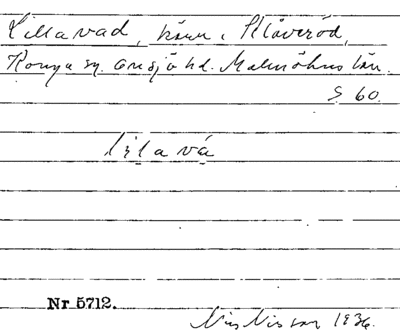 Lillavad, kärr i Klöveröd,
Konga sn. Onsjö hd. Malmöhus län.
S 60.
lılavá
Nr 5712.
Nils Nilsson 1936.